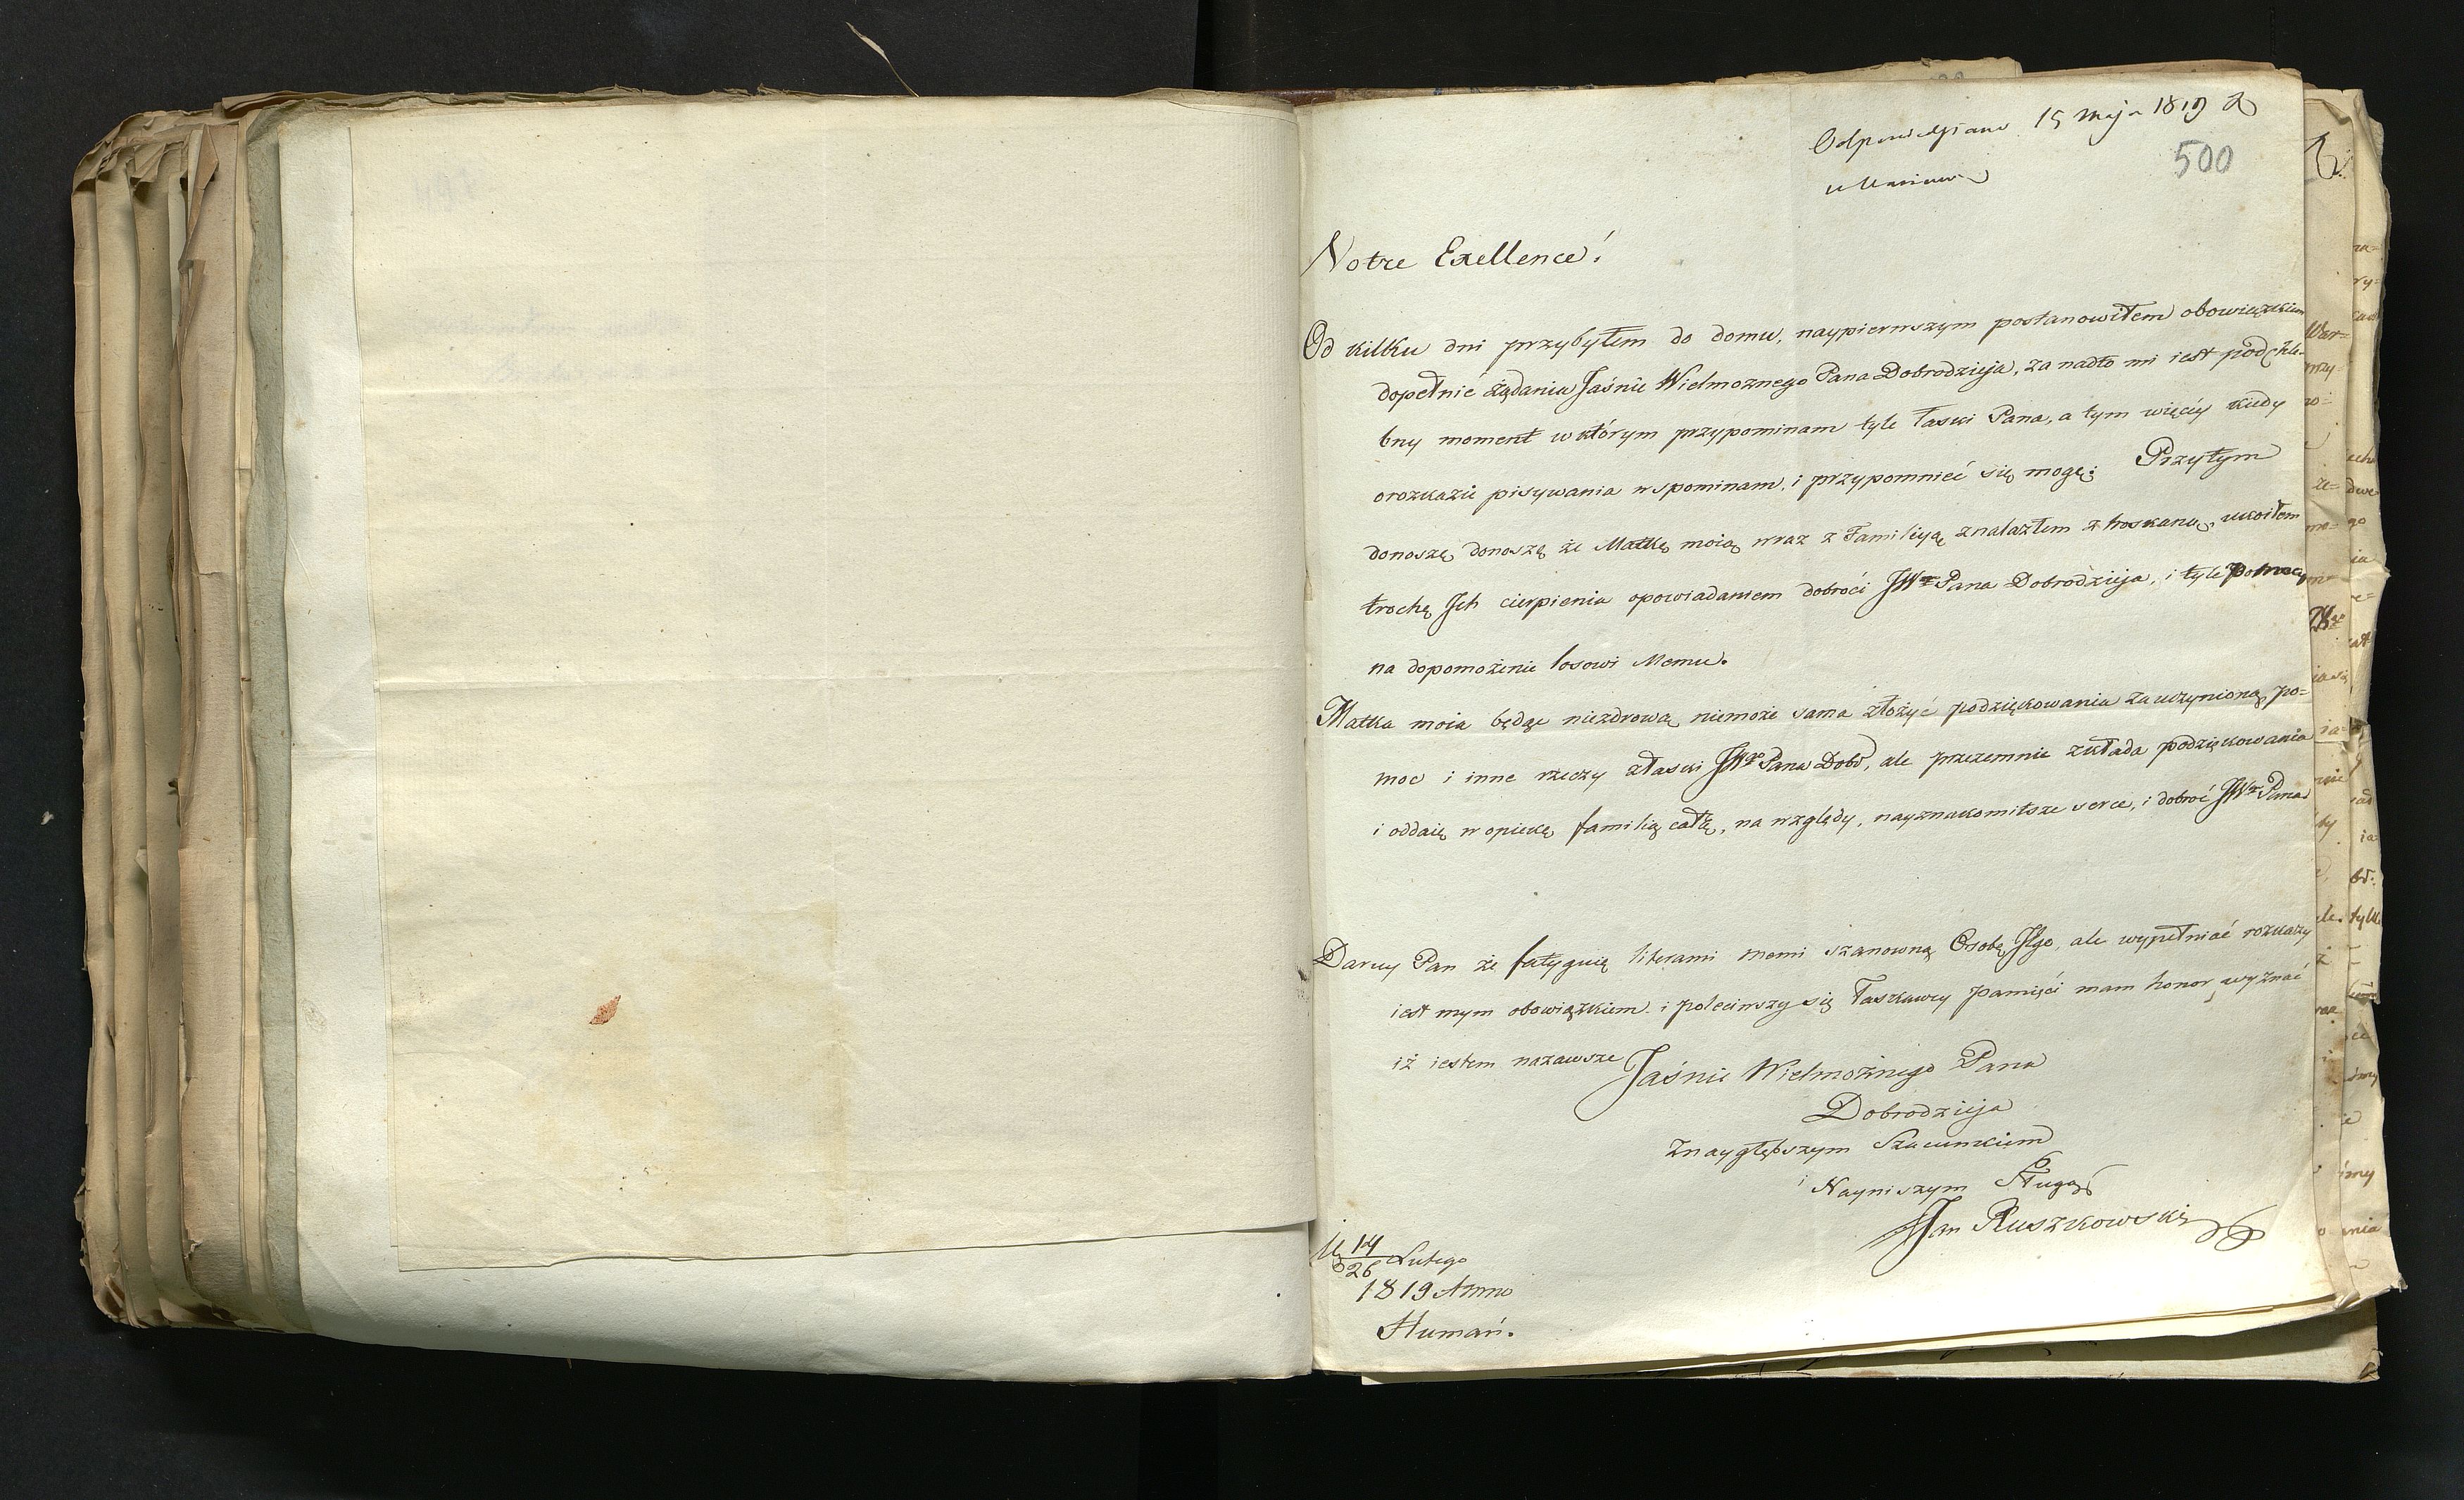 Odpowiedziano 15 Maja 1819
500
Notre Exellence!
Od kilku dni przybyłem do domu, naypierwszym postanowiłem obowiązkiem
dopełnić żądania Jaśnie Wielmoznego Pana Dobrodzieja, za nadto mi iest podchle-
bny moment w którym przypominam tyle łaski Pana, a tym więcéy kiedy
orozkazie pisywania wspominam, i przypomnieć się mogę; Przytym
donoszę, donoszę że Matkę moią wraz z Familiyą znalazłem ztroskaną, ukoiłem
trochę Ich cierpienia opowiadaniem dobroći JWo Pana Dobrodzieja, i tyle pomocy
na dopomożenie losowi Memu.
Matka moia będąc niezdrową niemoże sama złożyć podziękowania za uczynioną po-
moc i inne rzeczy złaski JWo Pana Dobr, ale przezemnie zkłada podziękowania
i oddaię w opiekę familią całą, na względy, nayznakomitsze serce, i dobroć JWo Pana
Daruy Pan że fatyguię literami memi szanowną Osobę Jego, ale wypełniać rozkazy
iest mym obowiązkiem. i poleciwszy się łaskawey pamięći mam honor wyznać
iż iestem nazawsze Jaśnie Wielmożnego Pana
Dobrodzieja
Znaygłębszym Szacunkiem
i Nayniszym Sługą
Jan Ruszkowski
14
26 Lutego
1819 Anno
Humań.